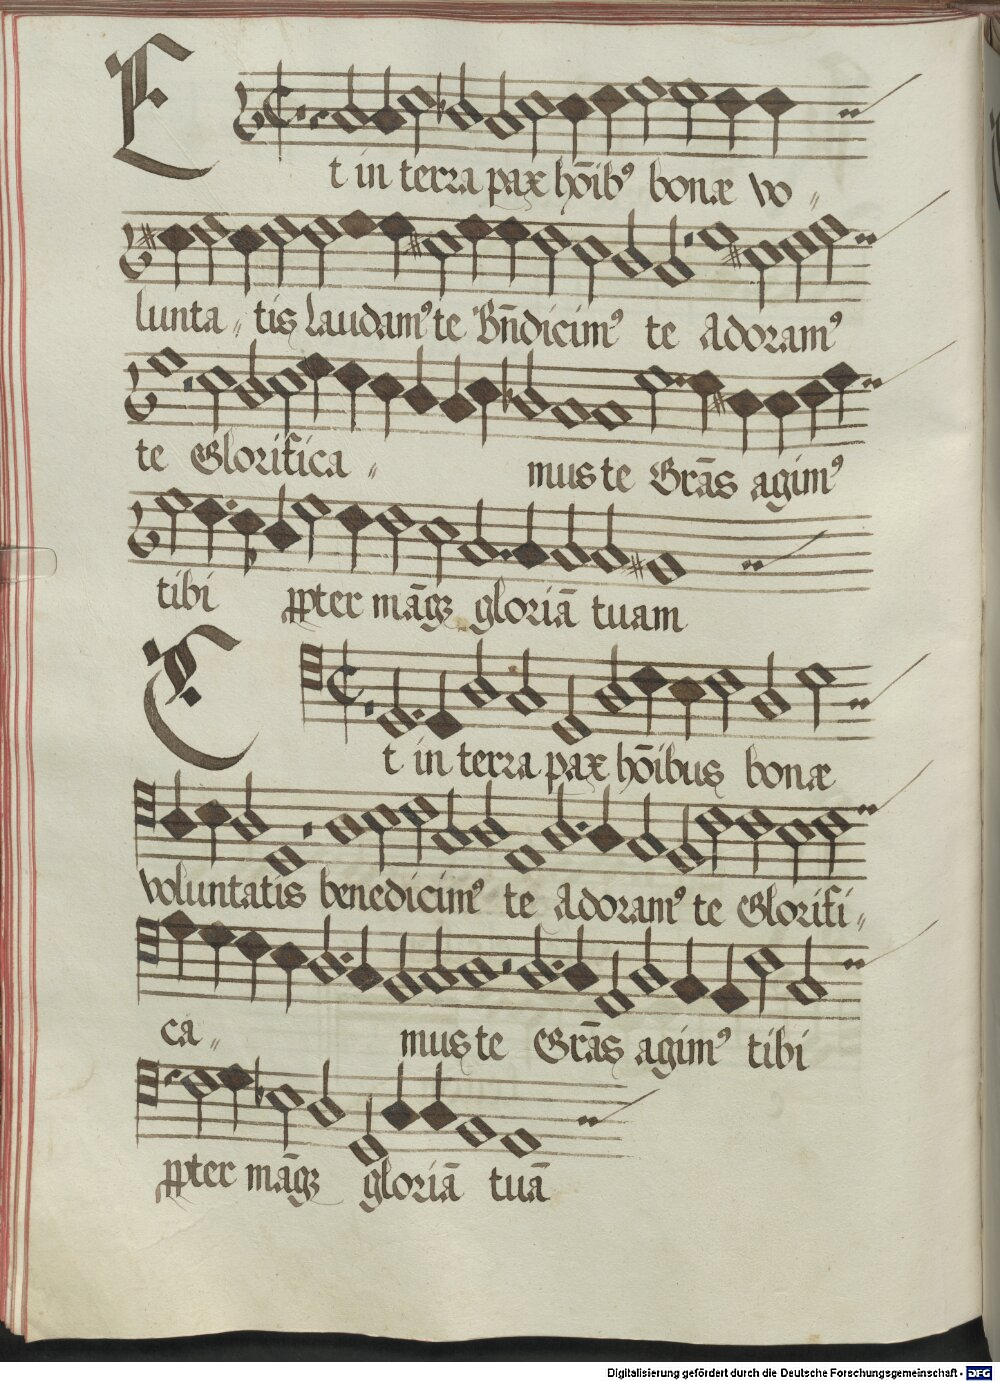 Et in terra pax hōibꝰ bonæ vo〃
lunta〃tis Laudamꝰ te Bn̄dicimꝰ te Adoramꝰ
te Glorifica〃 mus te Grās agimꝰ
tibi ꝓpter māgꝫ gloriā tuam
Et in terra pax hōibus bonæ
voluntatis benedicimꝰ te Adoramꝰ te Glorifi〃
ca〃 mus te Grās agimꝰ tibi
ꝓpter māgꝫ gloriā tuā
Digitalisierung gefördert durch die Deutsche Forschungsgemeinschaft - DFG